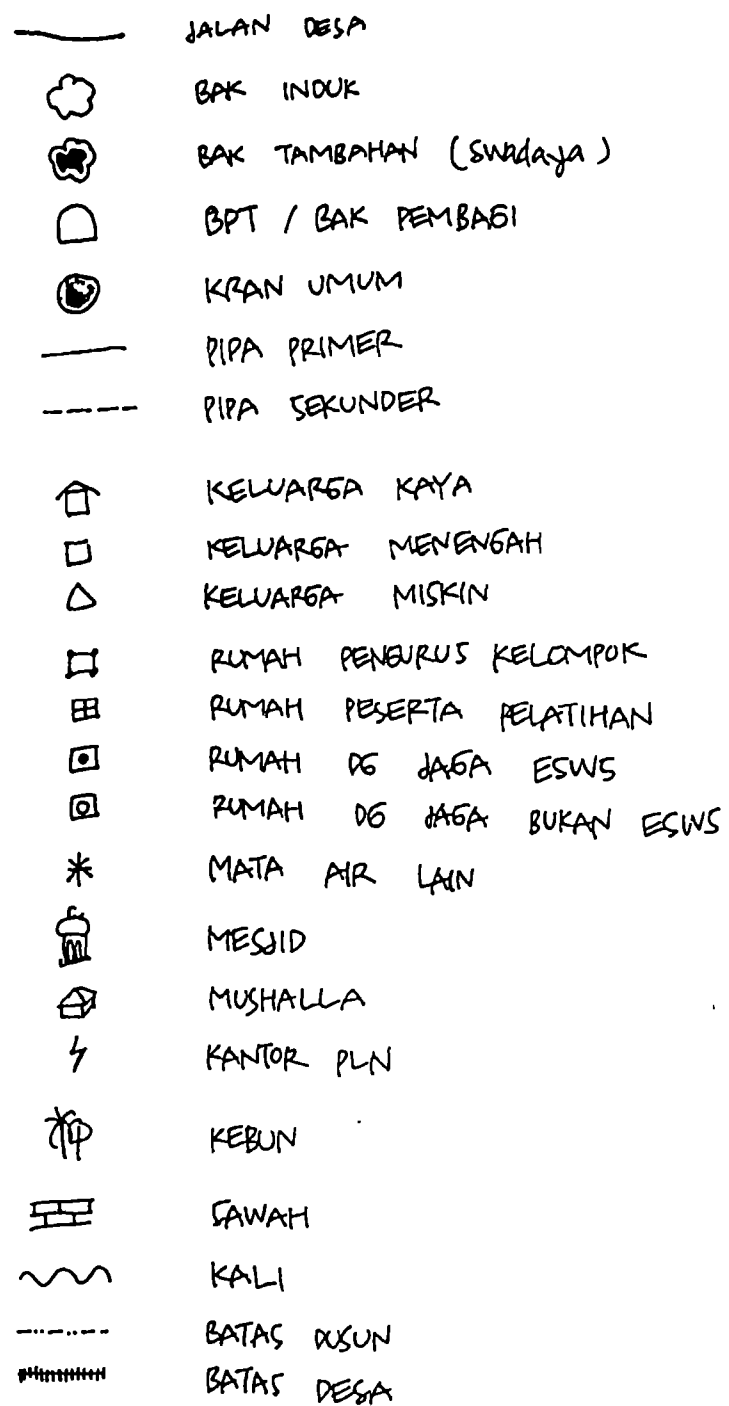 JALAN DESA
BAK INDUK
BAK TAMBAHAN (swadaya)
BPT / BAK PEMBAGI
KRAN UMUM
PIPA PRIMER
PIPA SEKUNDER
KELUARGA KAYA
KELUARGA MENENGAH
KELUARGA MISKIN
RUMAH PENGURUS KELOMPOK
RUMAH PESERTA PELATIHAN
RUMAH DG JAGA ESWS
RUMAH DG JAGA BUKAN ESWS
MATA AIR LAIN
MESJID
MUSHALLA
KANTOR PLN
KEBUN
SAWAH
KALI
BATAS DUSUN
BATAS DESA